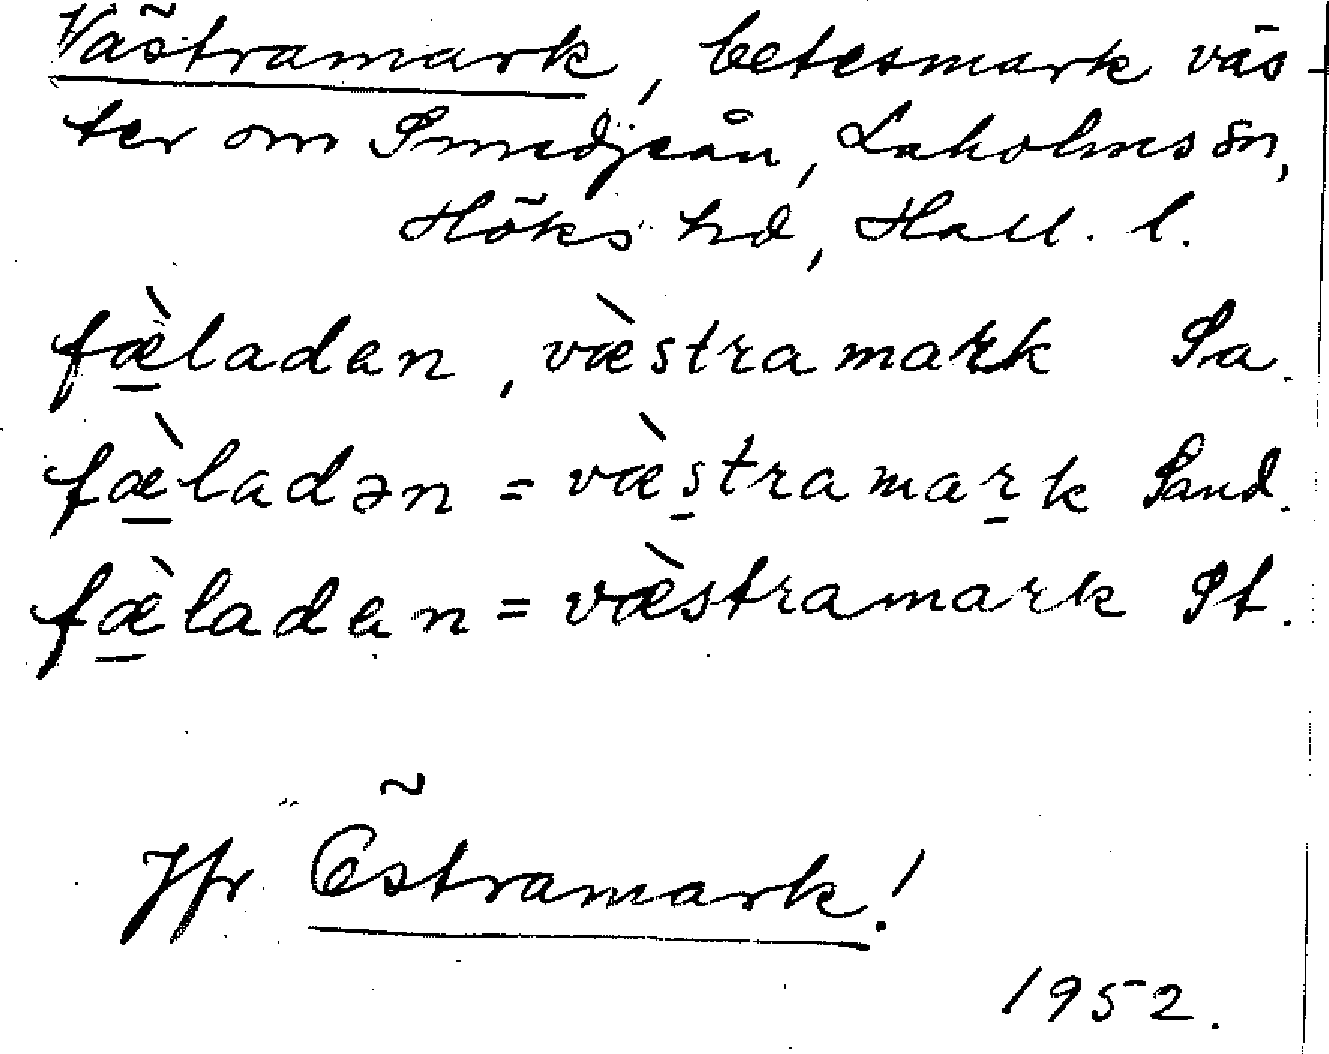 Västramark, betesmark väs-
ter om Smedjeån, Laholms sn,
Höks hd, Hall. l.
fæ̀ladan, væ̀stramark Sa.
fæ̀ladən = væ̀stramark Sand.
fæ̀ladan = væ̀stramark St.
Jfr Östramark!
1952.